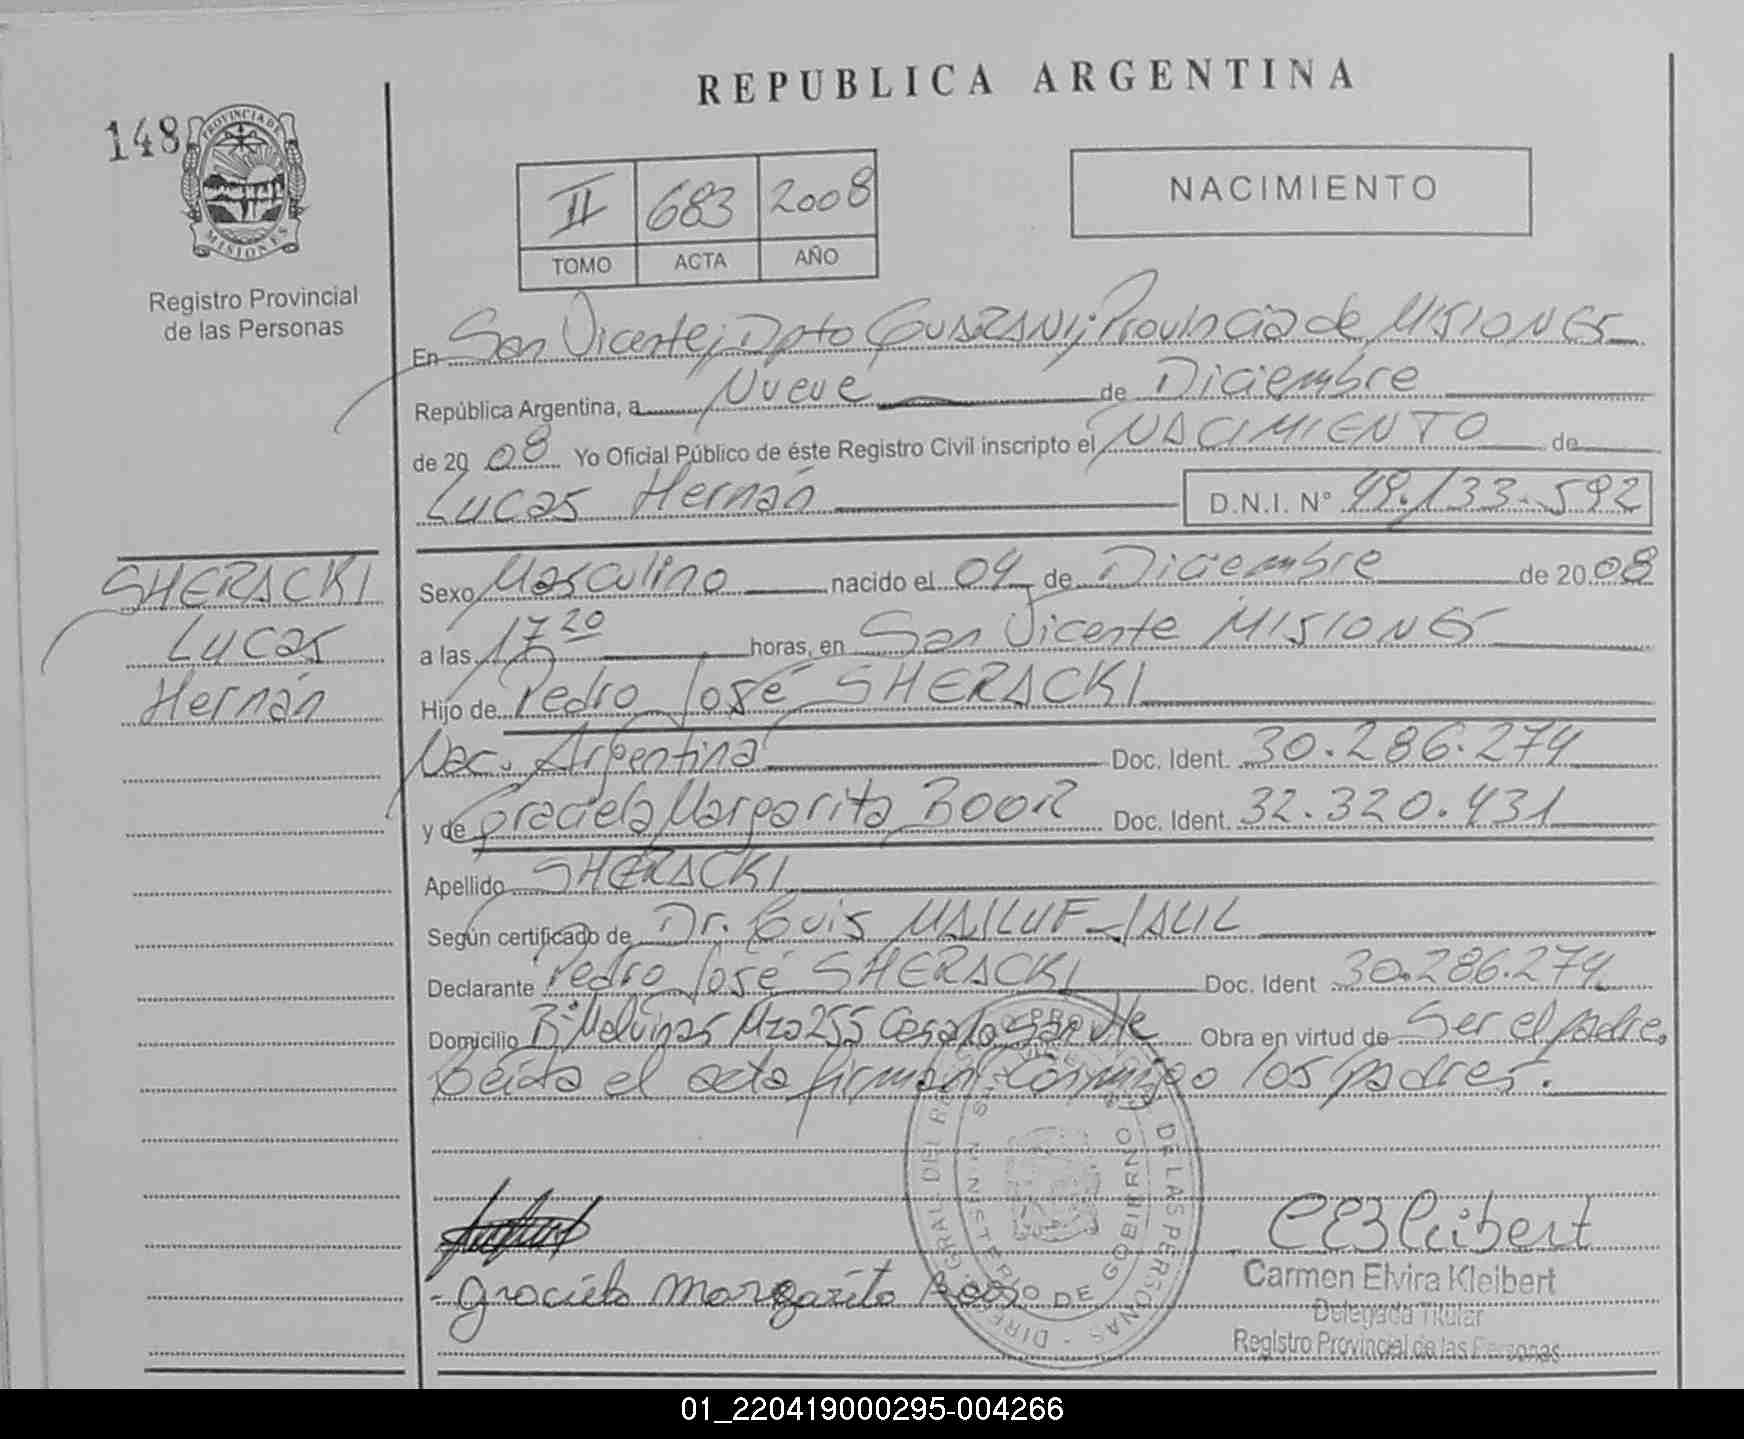 REPUBLICA ARGENTINA
148
PROVINCIA DE
MISIONES
Registro Provincial
de las Personas
II 683 2008
TOMO ACTA AÑO
NACIMIENTO
En San Vicente; Dpto GUARANI; Provincia de MISIONES
República Argentina, a Nueve de Diciembre
de 20 08 Yo Oficial Público de éste Registro Civil inscripto el NACIMIENTO de
Lucas Hernán D.N.I. N° 49.133.592
SHERACKI
Lucas
Hernán
Sexo Masculino nacido el 04 de Diciembre de 20 08
a las 17 20 horas, en San Vicente MISIONES
Hijo de Pedro José SHERACKI
Nac. Argentina Doc. Ident. 30.286.274
y de Graciela Margarita BOOR Doc. Ident. 32.320.431
Apellido SHERACKI
Según certificado de Dr. Luis MAILUF JALIL
Declarante Pedro José SHERACKI Doc. Ident 30.286.274
Domicilio B° Malvinas Mza 255 Casa San Vte Obra en virtud de Ser el padre.
Leída el acta firman conmigo los padres.
DE LAS PERSONAS
MINISTERIO DE GOBIERNO
graciela margarita Boor
CEKleibert
Carmen Elvira Kleibert
Delegada Titular
Registro Provincial de las Personas
01_220419000295-004266